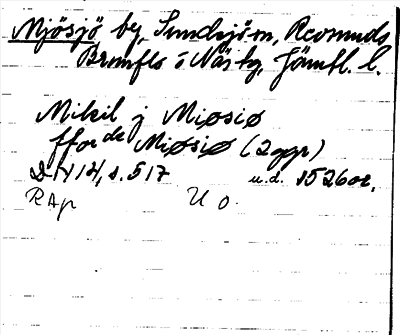 Mjösjö by, Sundsjö sn, Revsunds,
Brunflo o Näs tg, Jämtl. l.
Mikil j Miøsiø
ffor de Miøsiø (2 ggr)
DN 14, s. 517 u.d. 1526 or.
RAp U o.